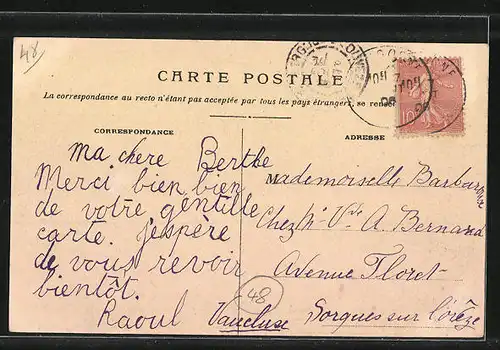 48
CARTE POSTALE
La correspondance au recto n'étant pas acceptée par tous les pays étrangers, se
CORRESPONDANCE
ADRESSE
Ma chere Berthe
Merci bien bien
de votre gentille
carte. J'espère
de vous revoir
bientôt.
Raoul
Mademoiselle
Chez Mme Vve A. Bernard
Avenue Floret
48
Vaucluse Sorgues sur l'Ovèze